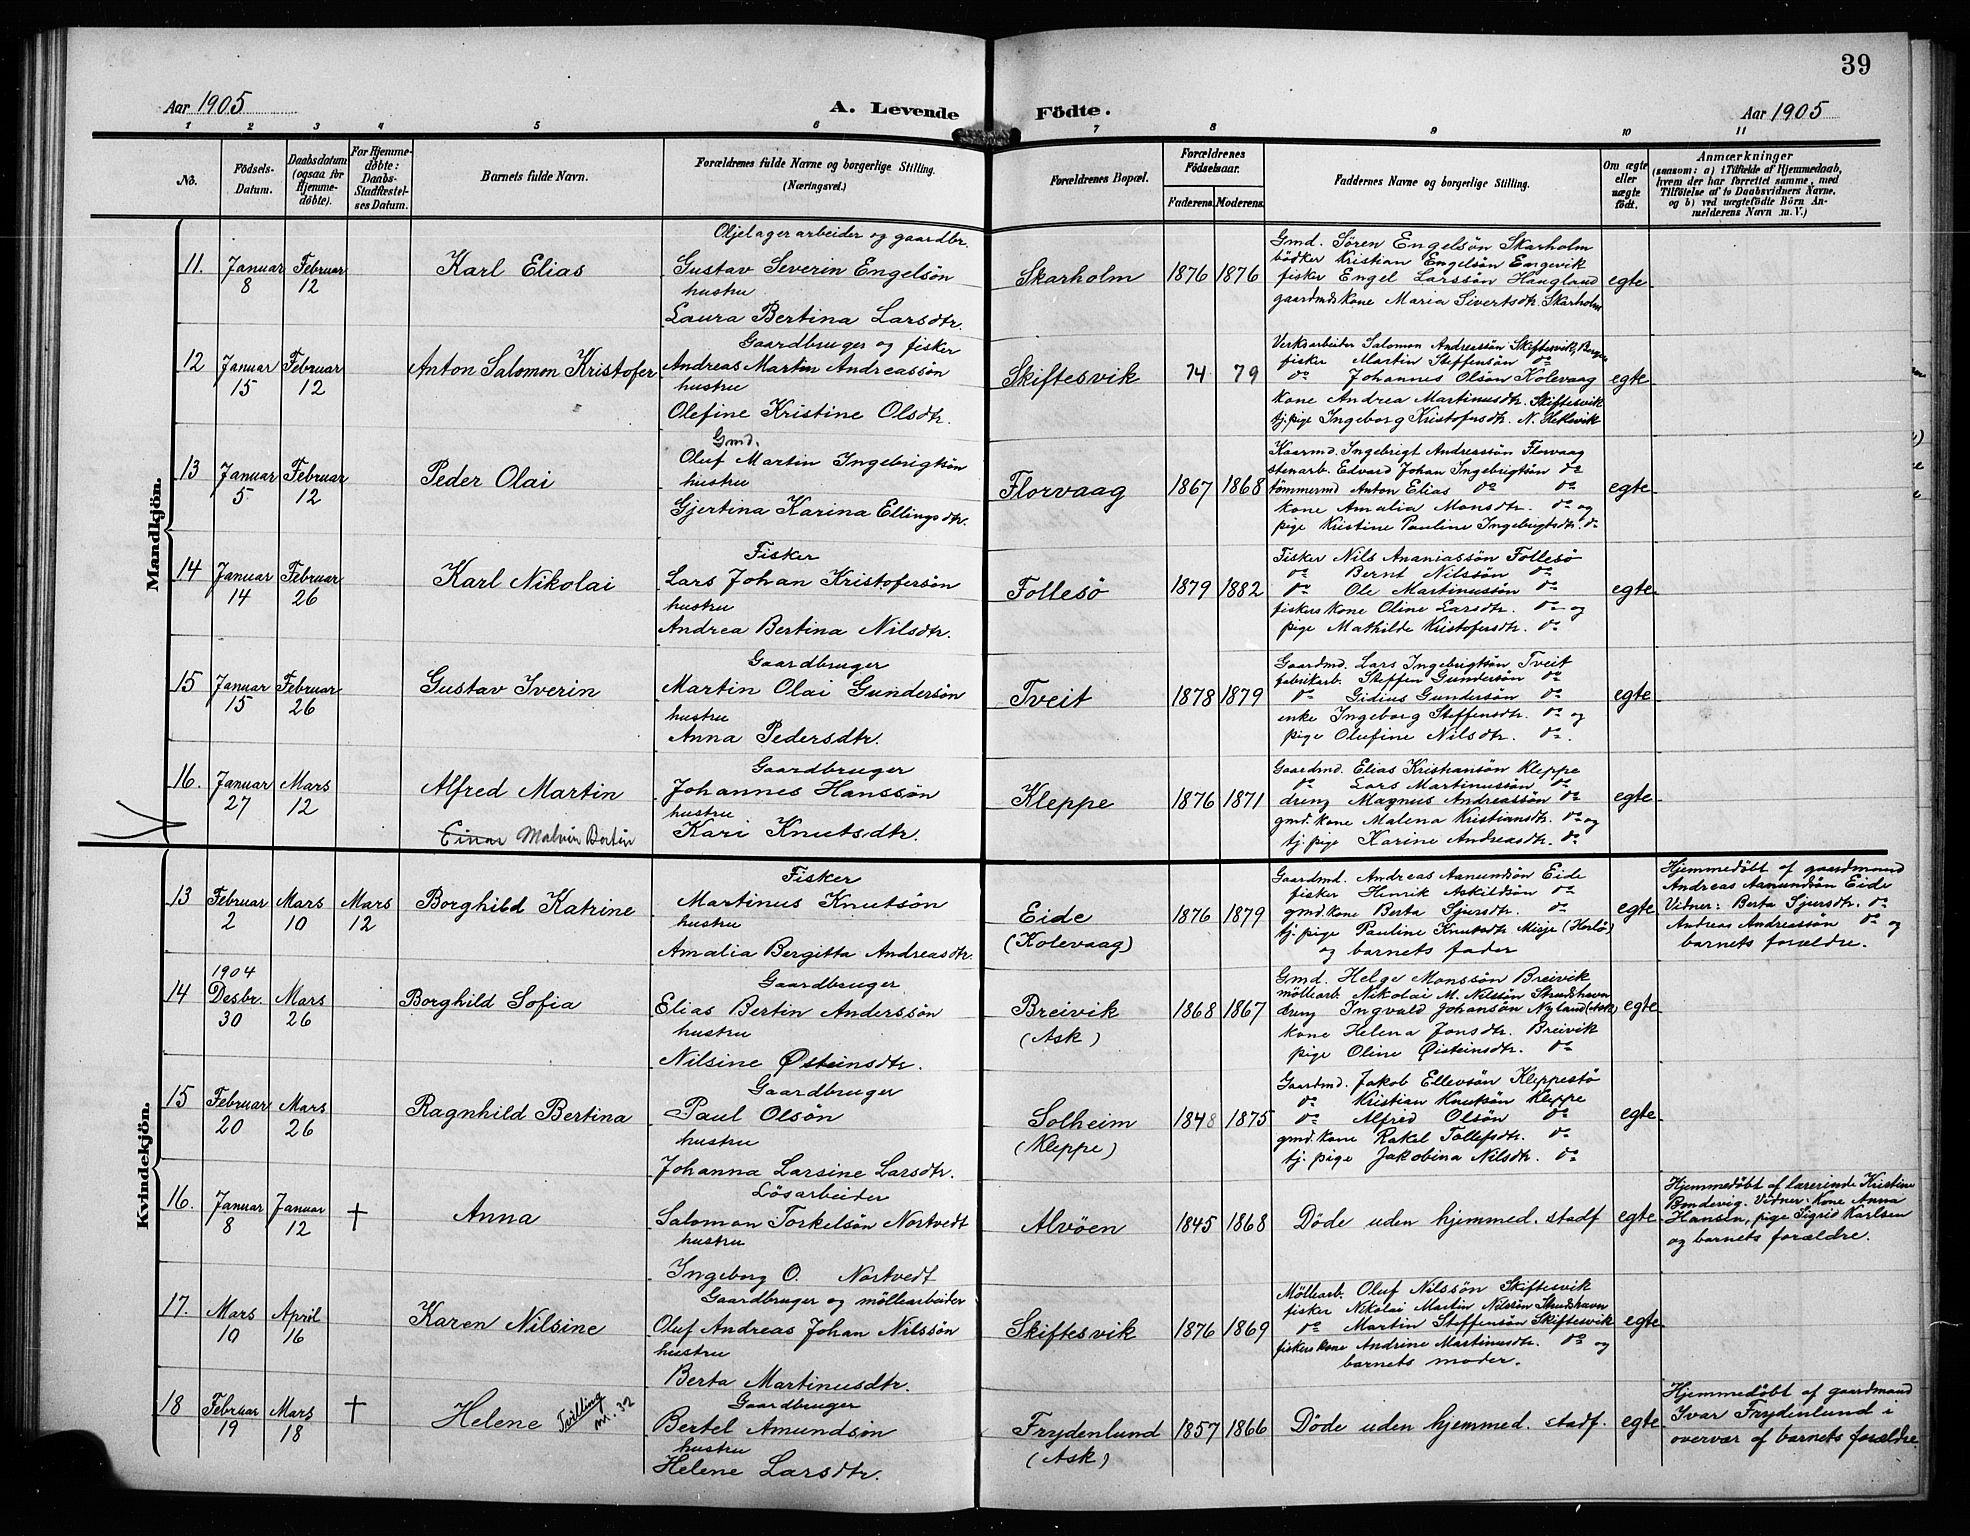 39
Aar 1905
A. Levende Födte.
Aar 1905
1 2 3 4 5 6 7 8 9 10 11
No.
Födsels-Datum.
Daabsdatum (ogsaa for Hjemme-döbte).
For Hjemme-döbte: Daabs-Stadfæstel-ses Datum.
Barnets fulde Navn.
Forældrenes fulde Navne og borgerlige Stilling. (Næringsvei.)
Forældrenes Bopæl.
Forældrenes Födselsaar.
Faderens. Moderens.
Faddernes Navne og borgerlige Stilling.
Om ægte eller uægte födt.
Anmærkninger
(saasom: a) i Tilfælde af Hjemmedaab, hvem der har forrettet samme, med Tilföielse af to Daabsvidners Navne, og b) ved uægtefödte Börn An-melderens Navn m. V.)
Mandkjön.
11. Januar 8 Februar 12
Karl Elias
Oljelagerarbeider og gaardbr.
Gustav Severin Engelsön
hustru
Laura Bertina Larsdtr.
Skarholm 1876 1876
Gmd. Sören Engelsön Skarholm
bödker Kristian Engelsön Engevik
fisker Engel Larssön Haugland
gaardmdskone Maria Sivertsdtr. Skarholm
egte
12 Januar 15 Februar 12
Anton Salomon Kristofer
Gaardbruger og fisker
Andreas Martin Andreassön
hustru
Olefine Kristine Olsdtr.
Skiftesvik 74 79
Verksarbeider Salomon Andreassön Skiftesvik, Bergen
fisker Martin Steffensön do
do Johannes Olsön Kolevaag
kone Andrea Martinusdtr. Skiftesvik
tj. pige Ingeborg Kristofersdtr. N. Hetlevik
egte
13 Januar 5 Februar 12
Peder Olai
Gmd.
Oluf Martin Ingebrigtsön
hustru
Gjertina Karina Ellingsdtr.
Florvaag 1867 1868
Kaarmd. Ingebrigt Andreassön Florvaag
stenarb. Edvard Johan Ingebrigtsön do
tömmermd Anton Elias do do
kone Amalia Monsdtr. do og
pige Kristine Pauline Ingebrigtsdtr. do
egte
14 Januar 14 Februar 26
Karl Nikolai
Fisker
Lars Johan Kristofersön
hustru
Andrea Bertina Nilsdtr.
Follesö 1879 1882
Fisker Nils Ananiassön Follesö
do Bernt Nilssön do
do Ole Martinussön do
fiskers kone Oline Larsdtr. do og
pige Mathilde Kristofersdtr. do
egte
15 Januar 15 Februar 26
Gustav Iverin
Gaardbruger
Martin Olai Gundersön
hustru
Anna Pedersdtr.
Tveit 1878 1879
Gaardmd. Lars Ingebrigtsön Tveit
fabrikarb. Steffen Gundersön do
do Gidius Gundersön do
enke Ingeborg Steffensdtr. do og
pige Olufine Nilsdtr. do.
egte
16. Januar 27 Mars 12
Alfred Martin
Einar Malvin Bertin
Gaardbruger
Johannes Hanssön
hustru
Kari Knutsdtr.
Kleppe 1876 1871
Gaardmd. Elias Kristiansön Kleppe
do Lars Martinussön do
dreng Magnus Andreassön do
gmd. kone Malena Kristiansdtr. do og
tj. pige Karine Andreasdtr. do
egte
Kvindekjön.
13 Februar 2 Mars 10 Mars 12
Borghild Katrine
Fisker
Martinus Knutsön
hustru
Amalia Bergitta Andreasdtr.
Eide (Kolevaag) 1876 1879
Gaardmd. Andreas Aanundsön Eide
fisker Henrik Askildsön do
gmd. kone Berta Sjursdtr. do
tj. pige Pauline Knutsdtr Misje (Herlö)
og barnets fader
egte
Hjemmedöbt af gaardmand
Andreas Aanundsön Eide
Vidner: Berta Sjursdtr. do
Andreas Andreassön do og
barnets forældre.
14 1904 Desbr. 30 Mars 26
Borghild Sofia
Gaardbruger
Elias Bertin Anderssön
hustru
Nilsine Østeinsdtr.
Breivik (Ask) 1868 1867
Gmd. Helge Monssön Breivik
möllearb. Nikolai M. Nilssön Strudshavn
dreng Ingvald Johansön Nyland (Ask)
kone Helena Jonsdtr. Breivik
pige Oline Øisteinsdtr. do
egte
15 Februar 20 Mars 26
Ragnhild Bertina
Gaardbruger
Paul Olsön
hustru
Johanna Larsine Larsdtr.
Solheim (Kleppe) 1848 1875
Gaardmd. Jakob Ellevsön Kleppestö
do Kristian Knutsön Kleppe
do Alfred Olsön do
gmd. kone Rakel Tollefsdtr. do
tj. pige Jakobina Nilsdtr. do
egte
16. Januar 8 Januar 12 †
Anna
Lösarbeider
Salomon Torkelsön Nortvedt
hustru
Ingeborg O. Nortvedt
Alvöen 1845 1868
Döde uden hjemmed. stadf
egte
Hjemmedöbt af lærerinde Kristine
Bondevig. Vidner: Kone Anna
Hansen, pige Sigrid Karlsen
og barnets forældre.
17. Mars 10 April 16
Karen Nilsine
Gaardbruger og möllearbeider
Oluf Andreas Johan Nilssön
hustru
Berta Martinusdtr.
Skiftesvik 1876 1869
Möllearb. Oluf Nilssön Skiftesvik
fisker Nikolai Martin Nilssön Strudshavn
do Martin Steffensön Skiftesvik
fiskers kone Andrine Martinusdtr. do og
barnets moder.
egte
18 Februar 19 Mars 18 †
Helene Tvilling nr. 32
Gaardbruger
Bertel Amundsön
hustru
Helene Larsdtr.
Frydenlund (Ask) 1857 1866
Döde uden hjemmed. stadf.
egte
Hjemmedöbt af gaardmand
Ivar Frydenlund i
overvær af barnets forældre